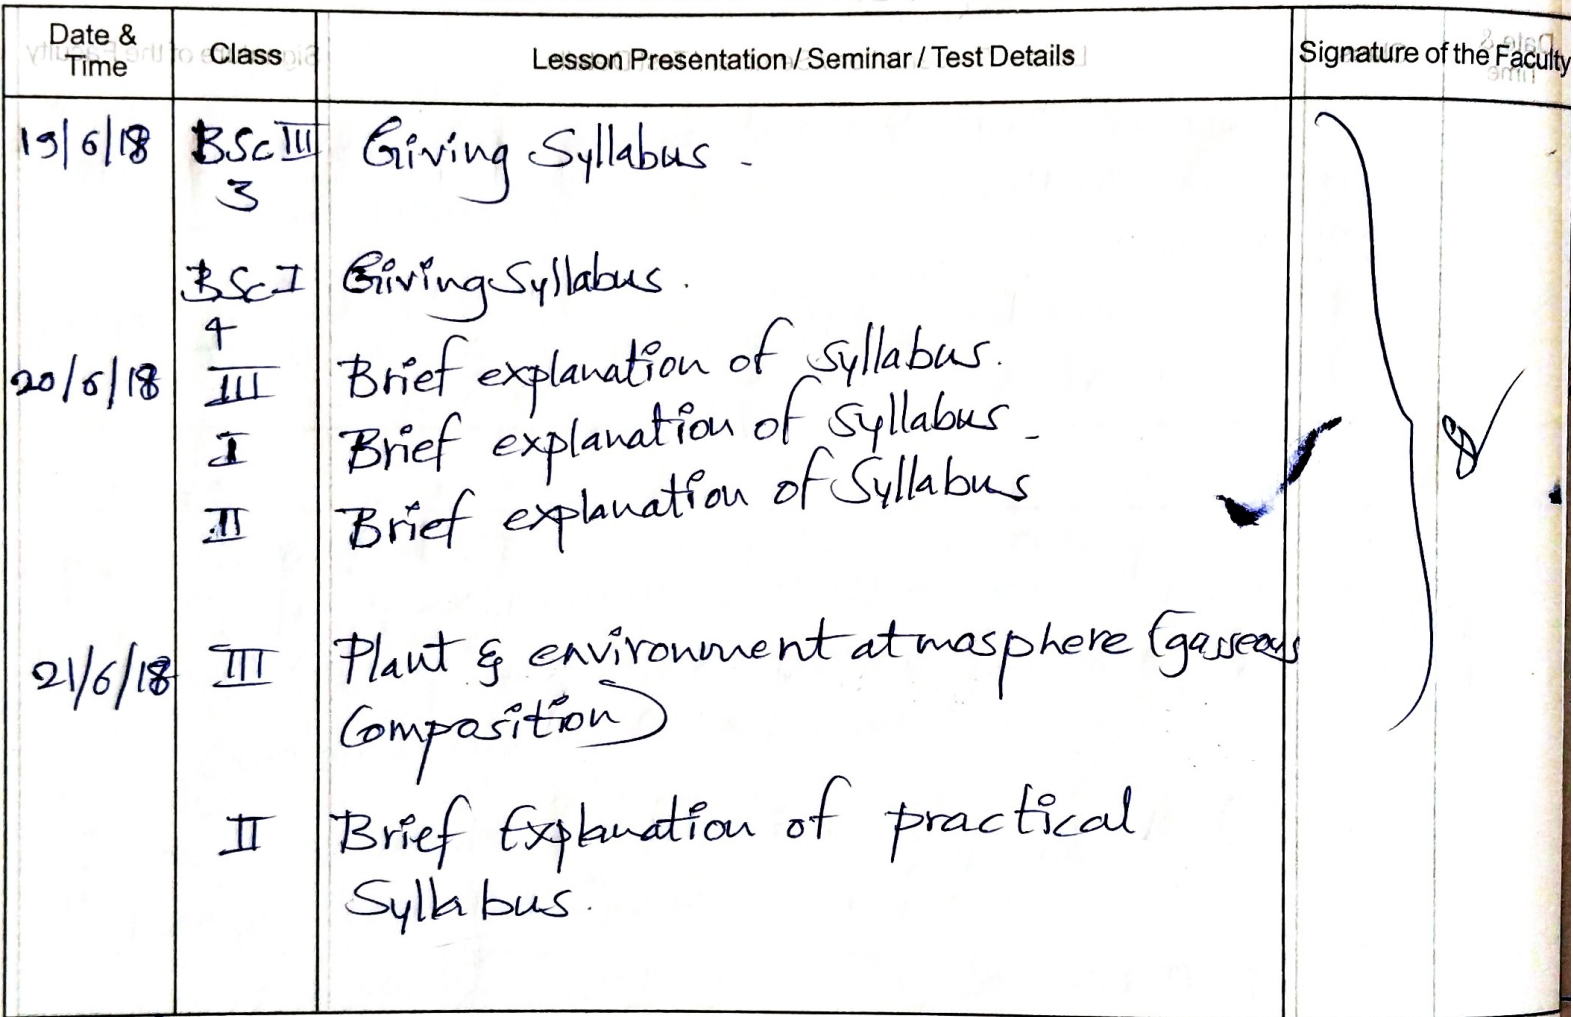 Date & Time Class Lesson Presentation / Seminar / Test Details Signature of the Faculty
19/6/18 BSc III Giving Syllabus.
3
BSc I Giving Syllabus.
4
20/6/18 III Brief explanation of syllabus.
I Brief explanation of syllabus.
II Brief explanation of Syllabus
21/6/18 III Plant & environment atmosphere (gasseous
Composition)
II Brief Explanation of practical
Syllabus.